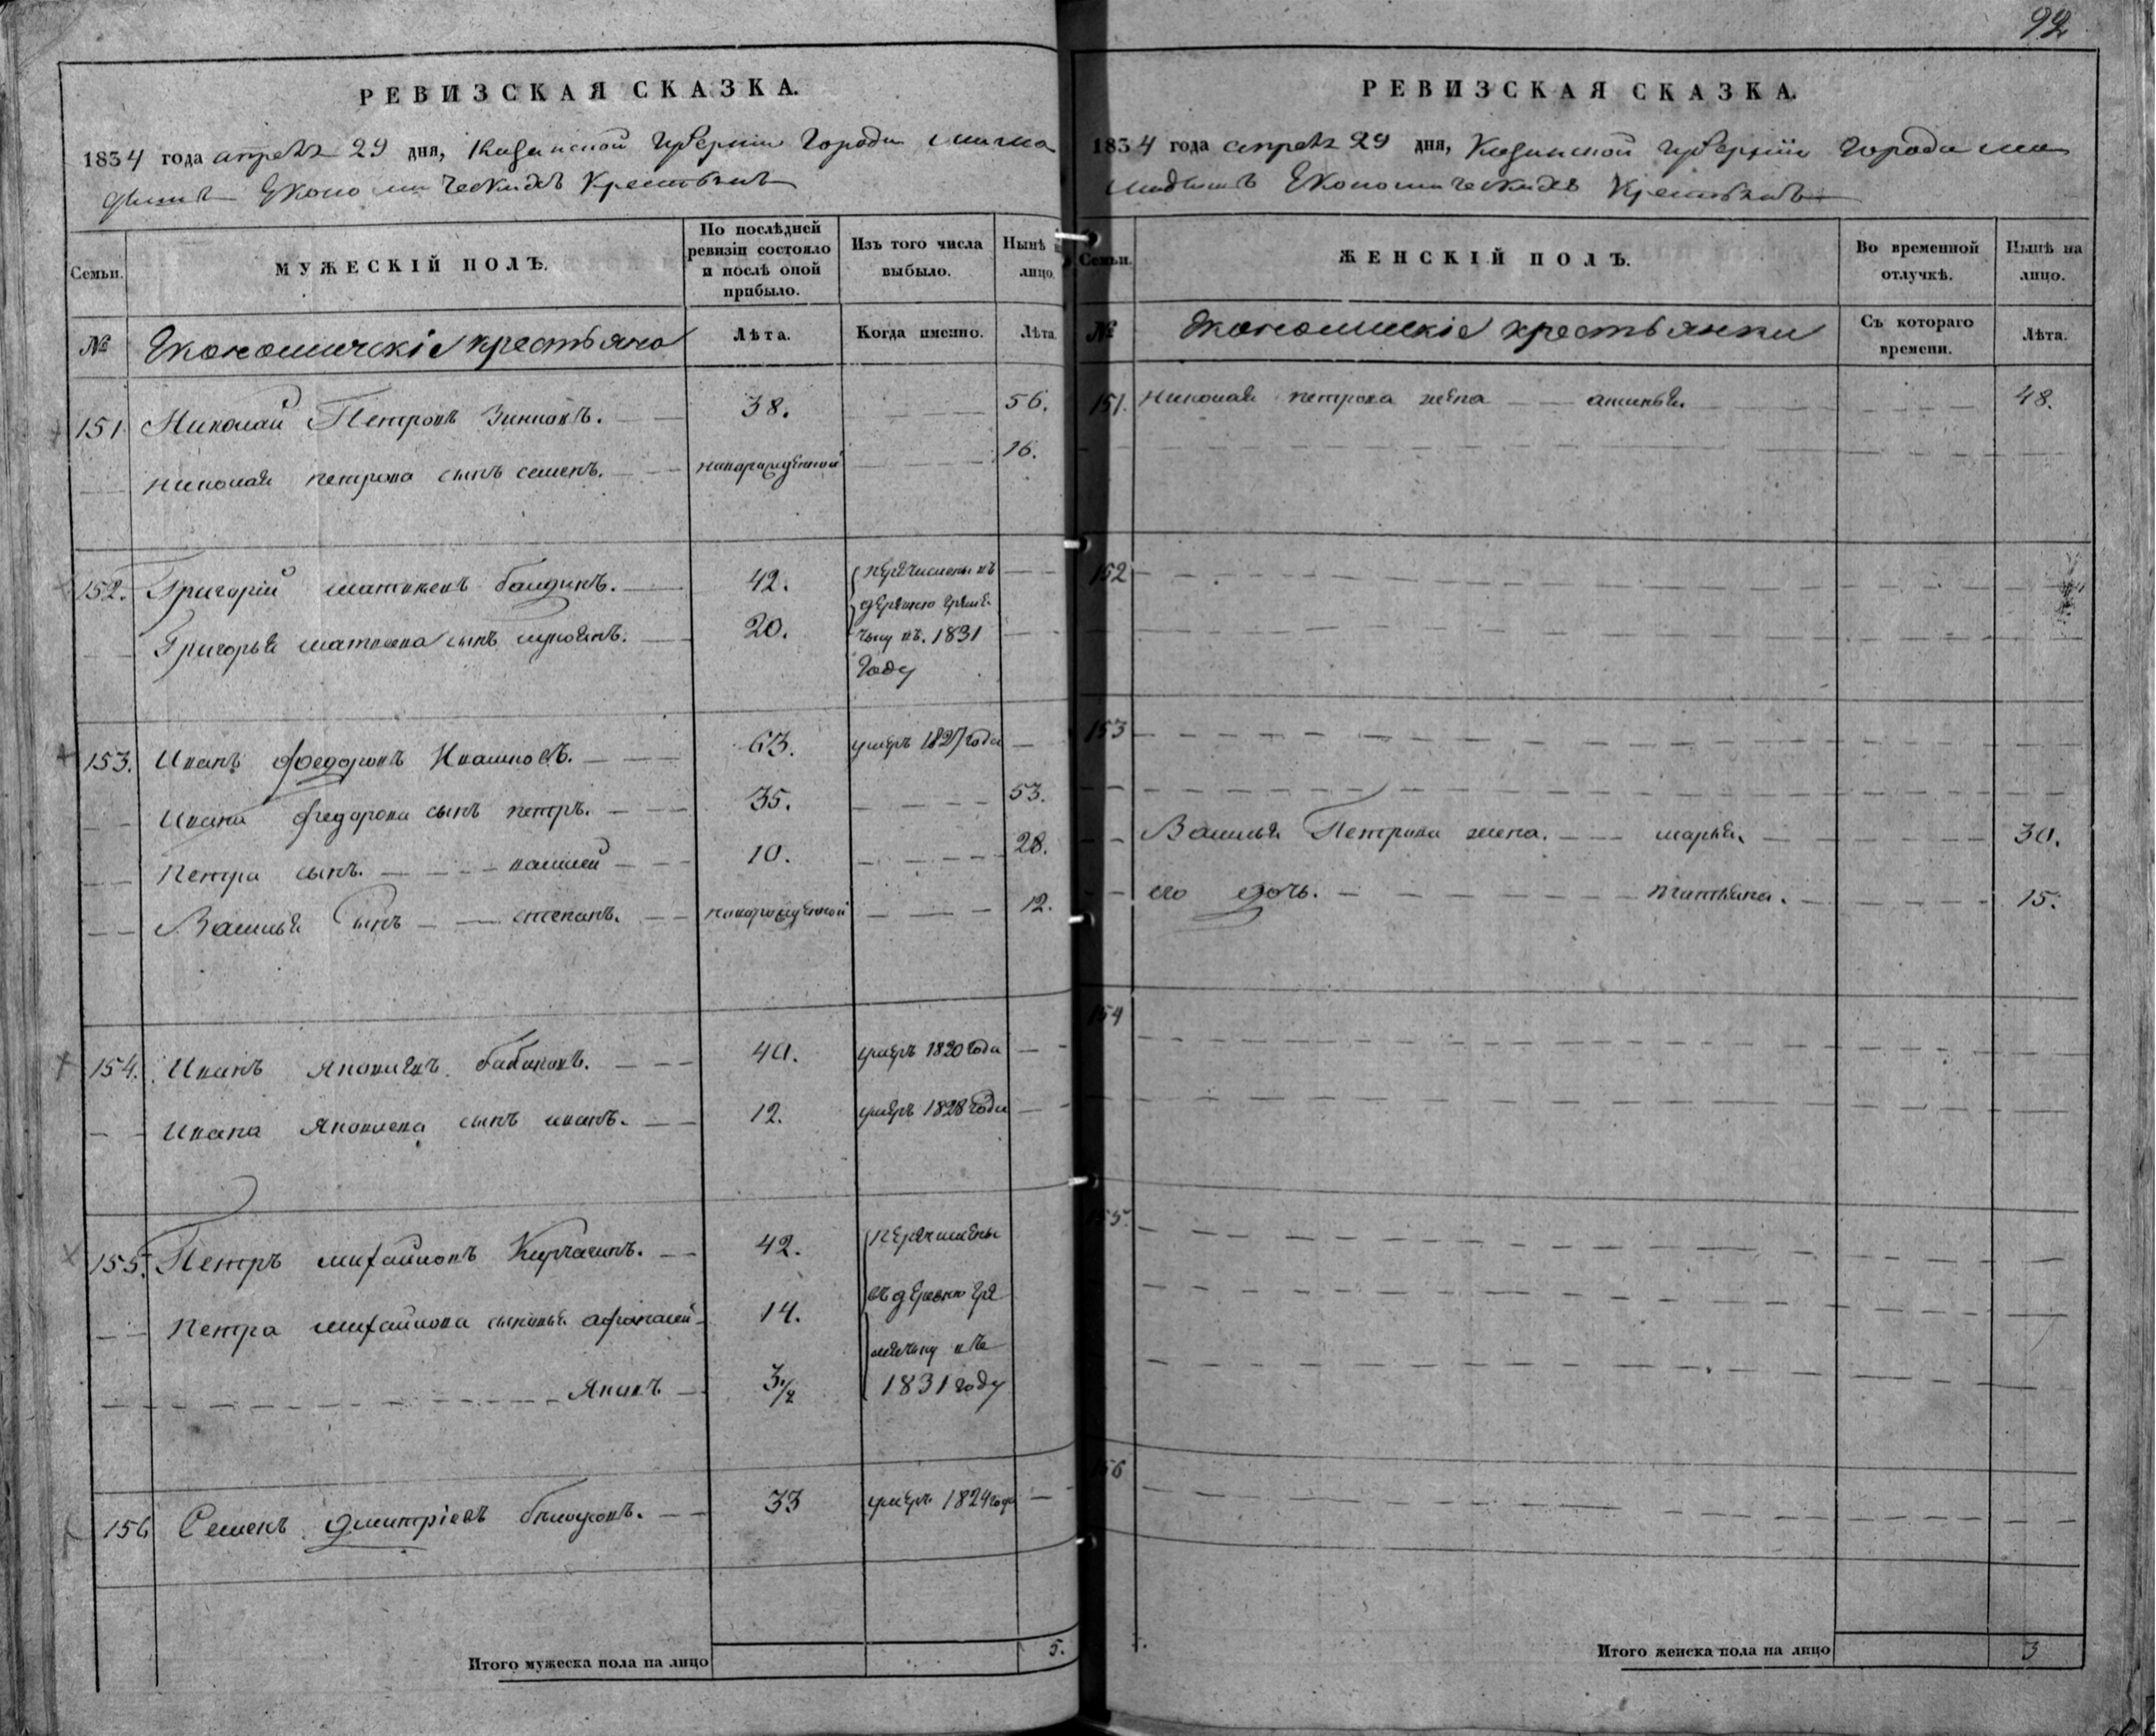 92
РЕВИЗСКАЯ СКАЗКА.
1834 года апреля 29 дня, Казанской губернии города мама
дышъ Экономическихъ Крестьянъ
Семьи.
МУЖЕСКІЙ ПОЛЪ.
По послѣдней ревизіи состояло и послѣ оной прибыло.
Изъ того числа выбыло.
Нынѣ на лицо.
№
Экономическіе крестьяне
Лѣта.
Когда именно.
Лѣта.
151 Николай Петровъ 38. 56.
Николая петрова сынъ семенъ. новорожденной 16.
152. Григорій матвеевъ 42. перечислены въ
деревню
Григорья матвеева сынъ 20. въ 1831
году
153. Иванъ федоровъ 63. умеръ 1827 года
Ивана федорова сынъ петръ. 35. 53.
Петра сынъ. василей 10. 28.
Василья сынъ степанъ. новорожденной 12.
154. Иванъ яковлевъ бабиковъ. 40. умеръ 1820 года
Ивана яковлева сынъ иванъ. 12. умеръ 1828 года
155. Петръ михайловъ Курчагинъ. 42. перечислены
Петра михайлова сыновья афонасей 14. въ деревню
въ
Яковъ 3 1/2 1831 году
156 Семенъ дмитріевъ 33 умеръ 1829 года
Итого мужеска пола на лицо 5.
РЕВИЗСКАЯ СКАЗКА.
1834 года апреля 29 дня, Казанской губерніи города ма
мадышъ Экономическихъ Крестьянъ
Семьи.
ЖЕНСКІЙ ПОЛЪ.
Во временной отлучкѣ.
Нынѣ на лицо.
№
Экономическіе крестьянки
Съ котораго времени.
Лѣта.
151. Николая петрова жена 48.
152
153
Василья Петрова жена. марья 30.
его дочь. татьяна. 15.
154
155.
156
Итого женска пола на лицо 3